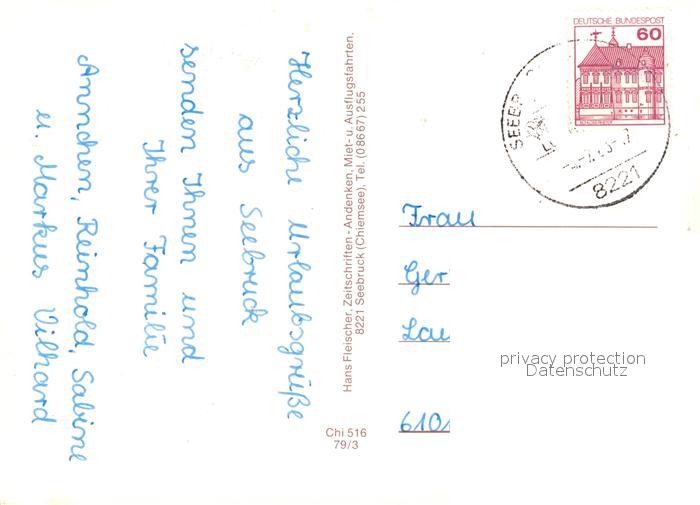 Herzliche Urlaubsgrüße
aus Seebruck
senden Ihnen und
Ihrer Familie
Annchen, Reinhold, Sabine
u. Markus Vilhard
Hans Fleischer, Zeitschriften - Andenken, Miet- u. Ausflugsfahrten,
8221 Seebruck (Chiemsee), Tel. (08667) 255
Chi 516
79/3
DEUTSCHE BUNDESPOST
60
SEEBR
8221
Frau
Ger
Lau
6101
privacy protection
Datenschutz